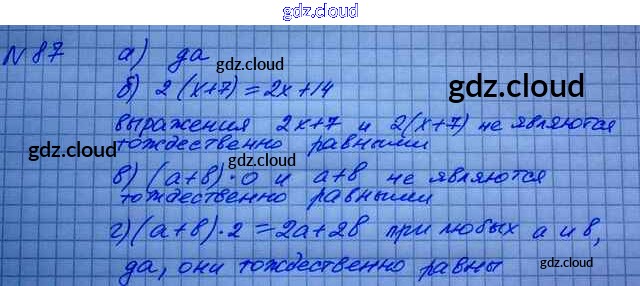 gdz.cloud
№ 87 а) да
gdz.cloud
б) 2(x+7)=2x+14
gdz.cloud
выражения 2x+7 и 2(x+7) не являются
тождественно равными
gdz.cloud
gdz.cloud
в) (a+в)·0 и a+в не являются
тождественно равными
gdz.cloud
г) (a+в)·2=2a+2в при любых a и в,
да, они тождественно равны
gdz.cloud